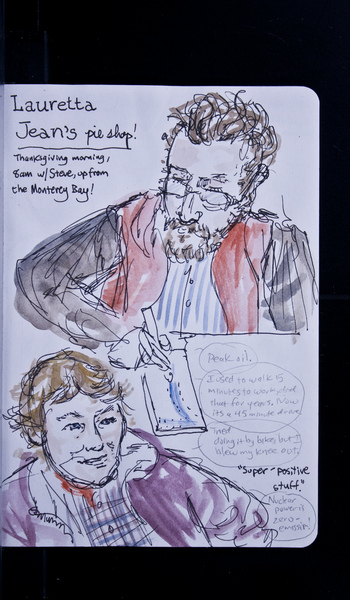 Lauretta
Jean's pie shop!
Thanksgiving morning,
8am w/ Steve, up from
the Monterey Bay!
Peak oil.
I used to walk 15
minutes to work, did
that for years. Now
it's a 45 minute drive.
doing it by bike, but I
blew my knee out.
"Super-positive
stuff."
Nuclear
power is
zero-
emission!